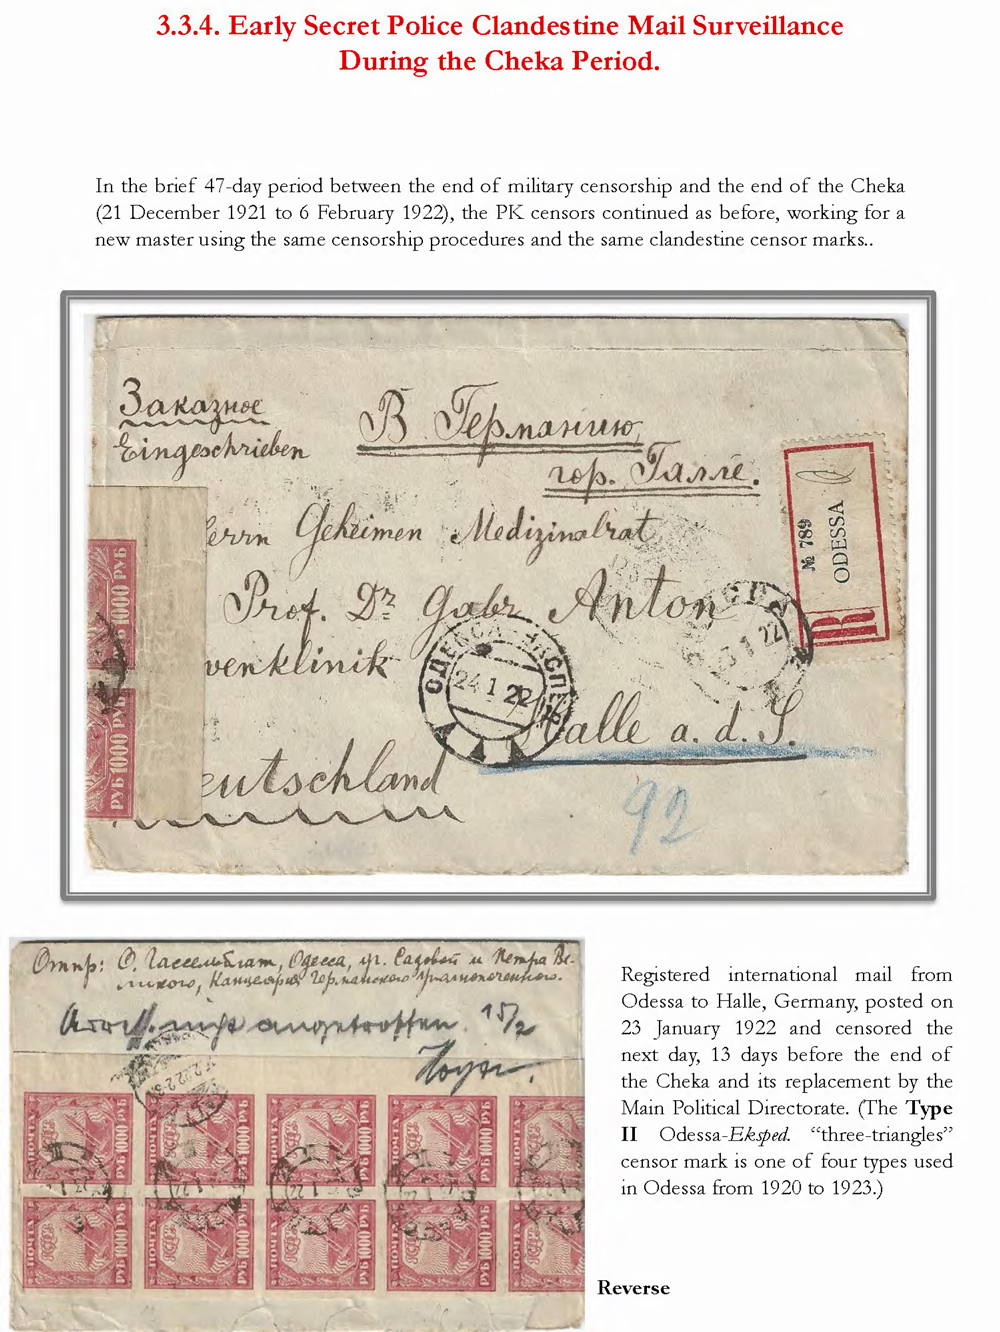 3.3.4. Early Secret Police Clandestine Mail Surveillance
During the Cheka Period.
In the brief 47-day period between the end of military censorship and the end of the Cheka
(21 December 1921 to 6 February 1922), the PK censors continued as before, working for a
new master using the same censorship procedures and the same clandestine censor marks..
Заказное
Eingeschrieben
В Германию,
гор. Галле.
№ 789
ODESSA
R
Herrn Geheimen Medizinalrat
Prof. Dr. Gabr Anton
venklinik
Halle a. d. S.
eutschland
ОДЕССА ЭКСПЕД
24 1 22
23 1 22
92
РУБ 1000 РУБ
РУБ 1000 РУБ
Отпр: О. Гассельблат, Одесса, уг. Садовой и Петра Ве-
ликого, Канцелярия Германского Уполномоченного.
nicht angetroffen. 15/2
ПОЧТА 1000 РУБ
ПОЧТА 1000 РУБ
ПОЧТА 1000 РУБ
ПОЧТА 1000 РУБ
ПОЧТА
ПОЧТА 1000 РУБ
ПОЧТА 1000 РУБ
ПОЧТА 1000 РУБ
ПОЧТА 1000 РУБ
ПОЧТА
Registered international mail from
Odessa to Halle, Germany, posted on
23 January 1922 and censored the
next day, 13 days before the end of
the Cheka and its replacement by the
Main Political Directorate. (The Type
II Odessa-Eksped. “three-triangles”
censor mark is one of four types used
in Odessa from 1920 to 1923.)
Reverse